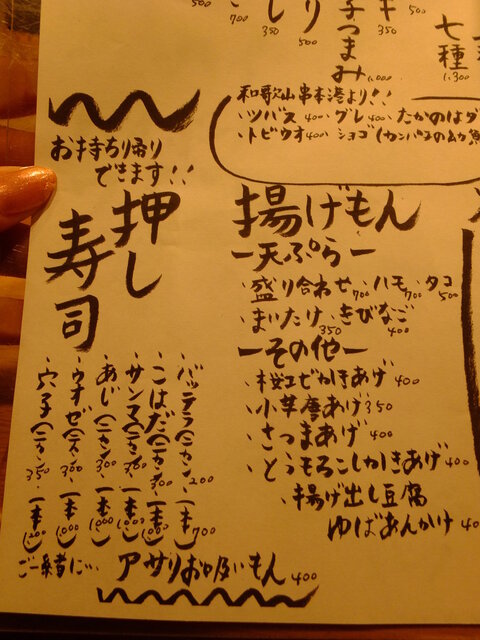 500
700
し
350
り
500
キ
350
子つまみ
1,000
500
七種
1,300
和歌山串本港より!!
・ツバス 400・グレ 400・たかのはダ
・トビウオ 400・ショゴ(カンパチの幼魚
お持ち帰り
できます!!
押し
寿司
・バッテラ(二カン)200 (一本)700
・こはだ(二カン)300 (一本)1000
・サンマ(二カン)300 (一本)1000
・あじ(二カン)300 (一本)1000
・ウオゼ(二カン)300 (一本)1000
・穴子(二カン)350 (一本)1200
ご一緒に… アサリお吸いもん 400
揚げもん
ー天ぷらー
・盛り合わせ 700・ハモ 700・タコ 500
・まいたけ 350・きびなご 400
ーその他ー
・桜エビかきあげ 400
・小芋唐あげ 350
・さつまあげ 400
・とうもろこしかきあげ 400
・揚げ出し豆腐
ゆばあんかけ